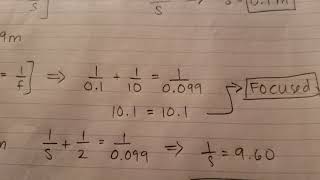 9m
= 1/f] ⇒ 1/0.1 + 1/10 = 1/0.099
10.1 = 10.1 → Focused
1/s + 1/2 = 1/0.099 ⇒ 1/s = 9.60